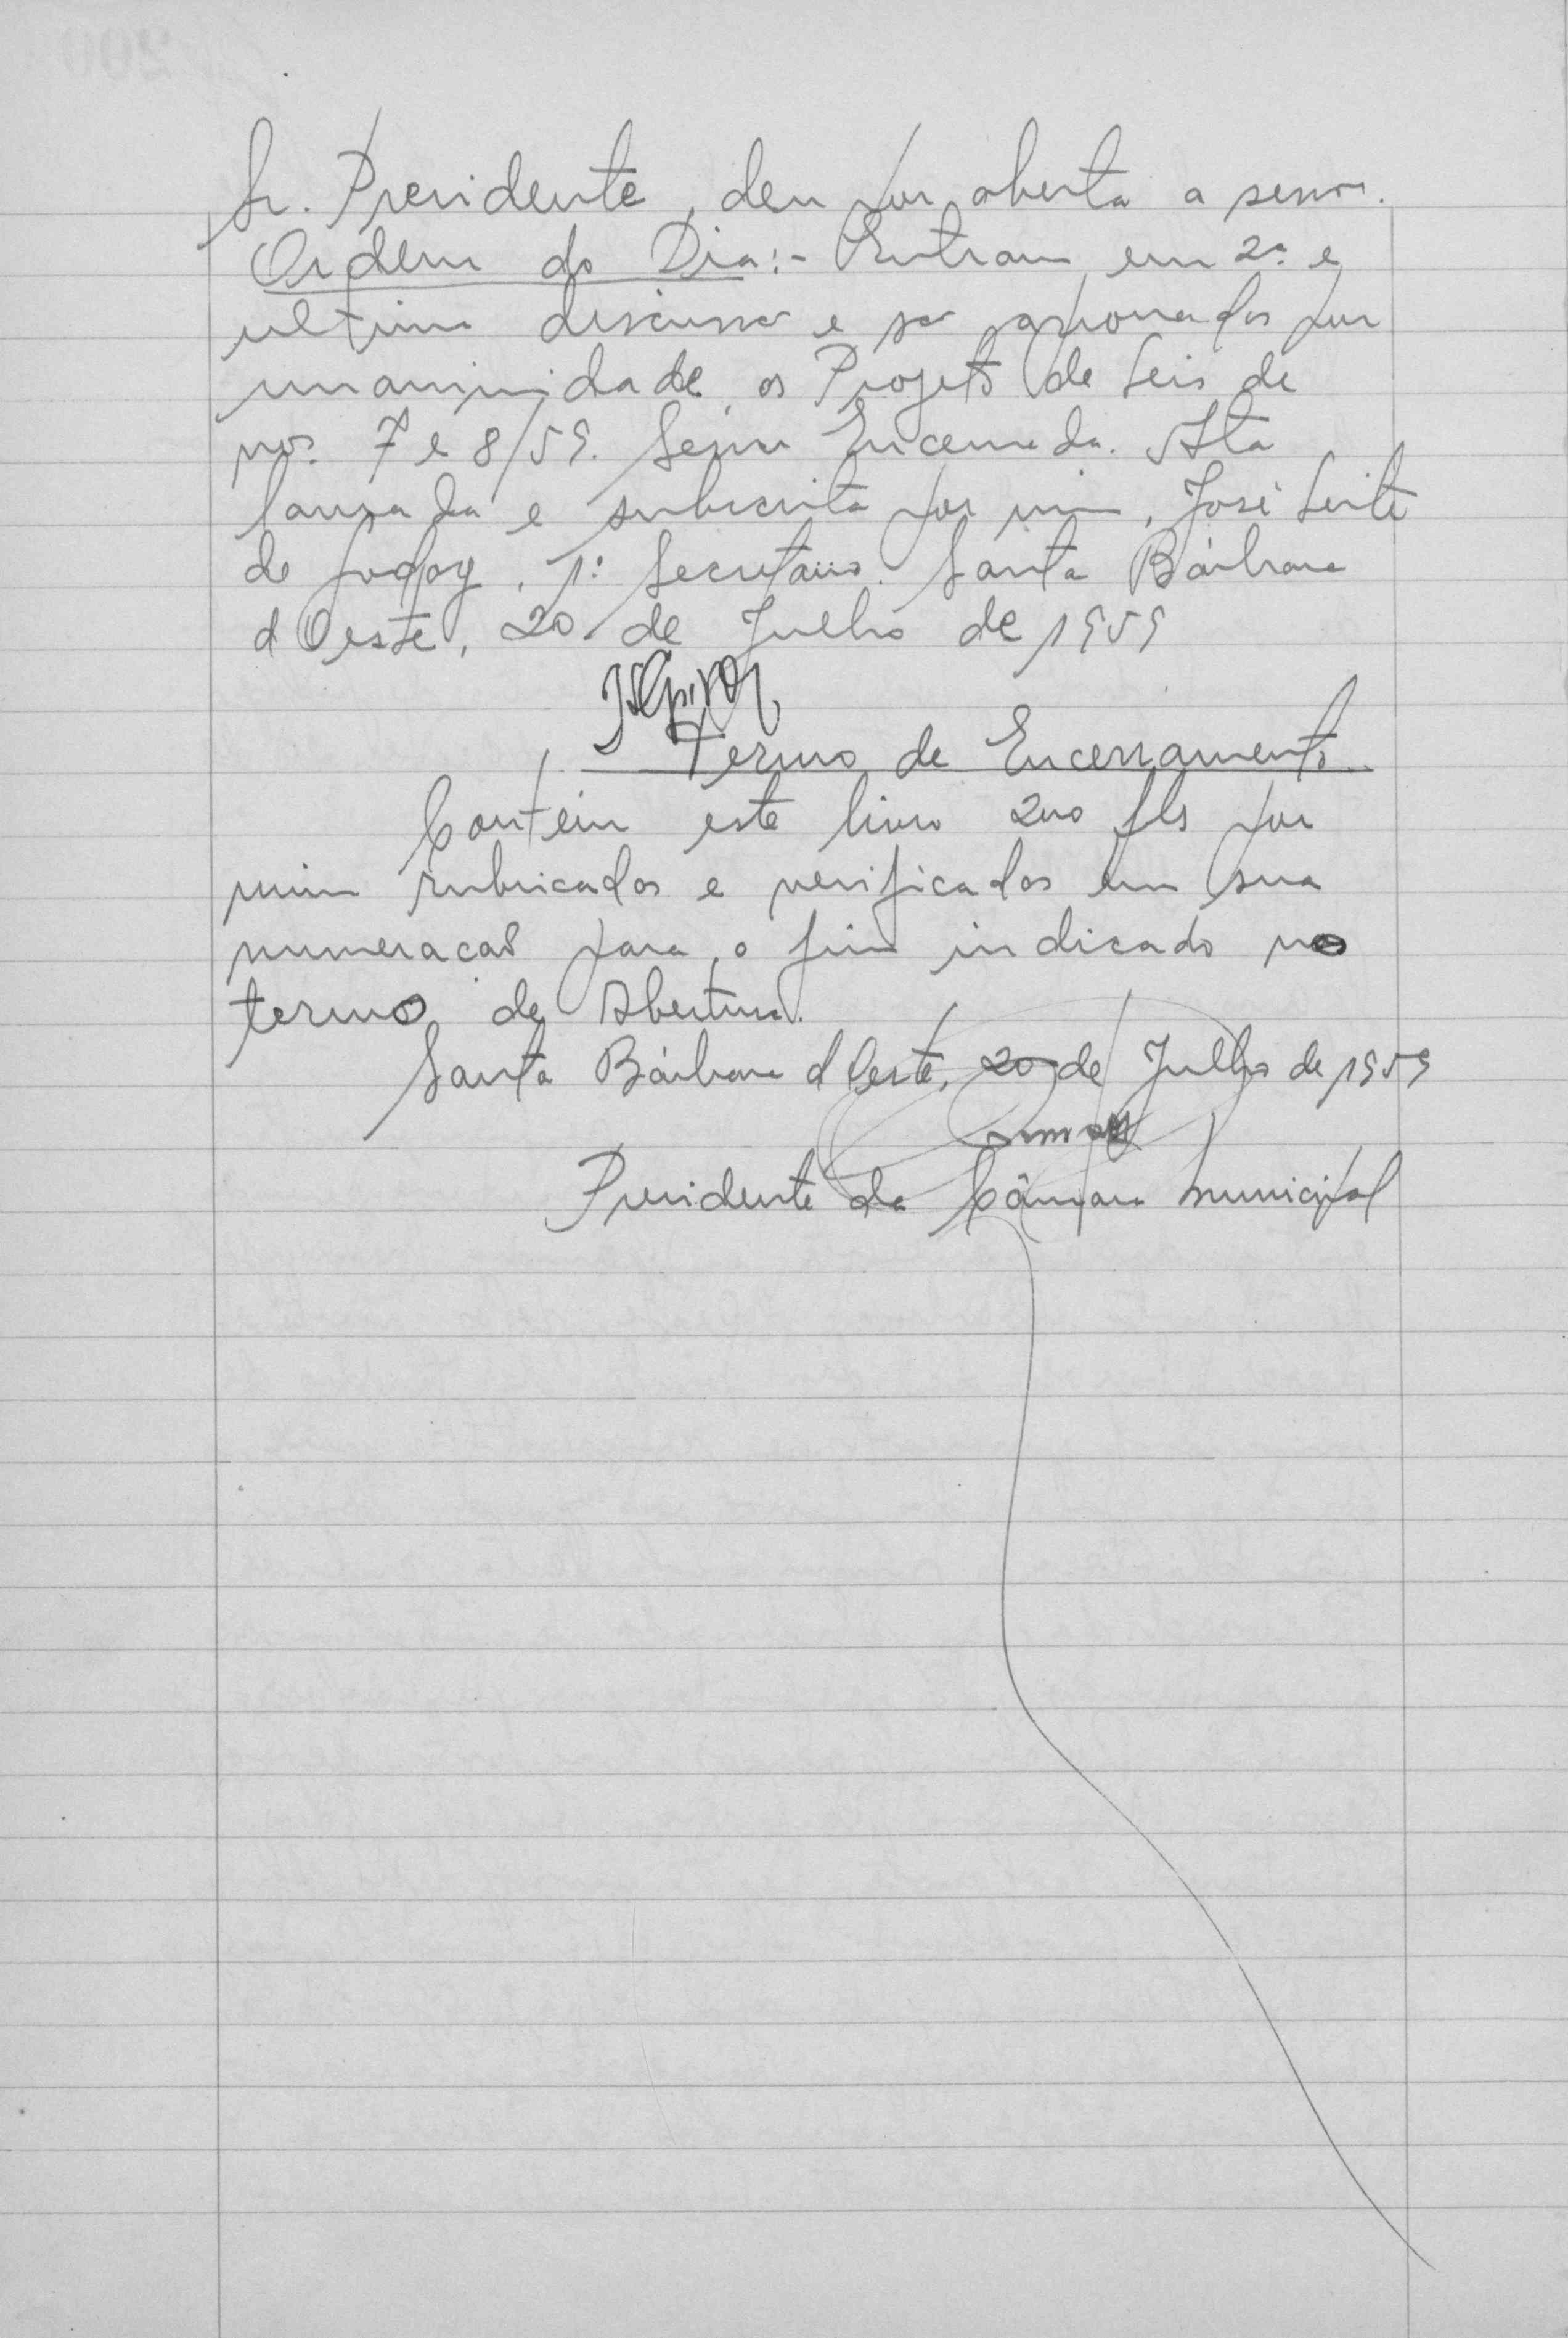 Sr. Presidente, deu por aberta a sessão.
Ordem do Dia:- Entram em 2ª e
ultima discussão e são aprovados por
unanimidade os Projeto de Leis de
nos. 7 e 8/59. Sessão Encerrada. Ata
lavrada e subscrita por mim, José Leite
de Godoy, 1º Secretario. Santa Bárbara
d Oeste, 20 de Julho de 1959
Termo de Encerramento
Contém este livro 200 fls por
mim rubricados e verificados em sua
numeracaõ para o fim indicado no
termo de Abertura.
Santa Bárbara d Oeste, 20 de Julho de 1959
Presidente da Câmara Municipal